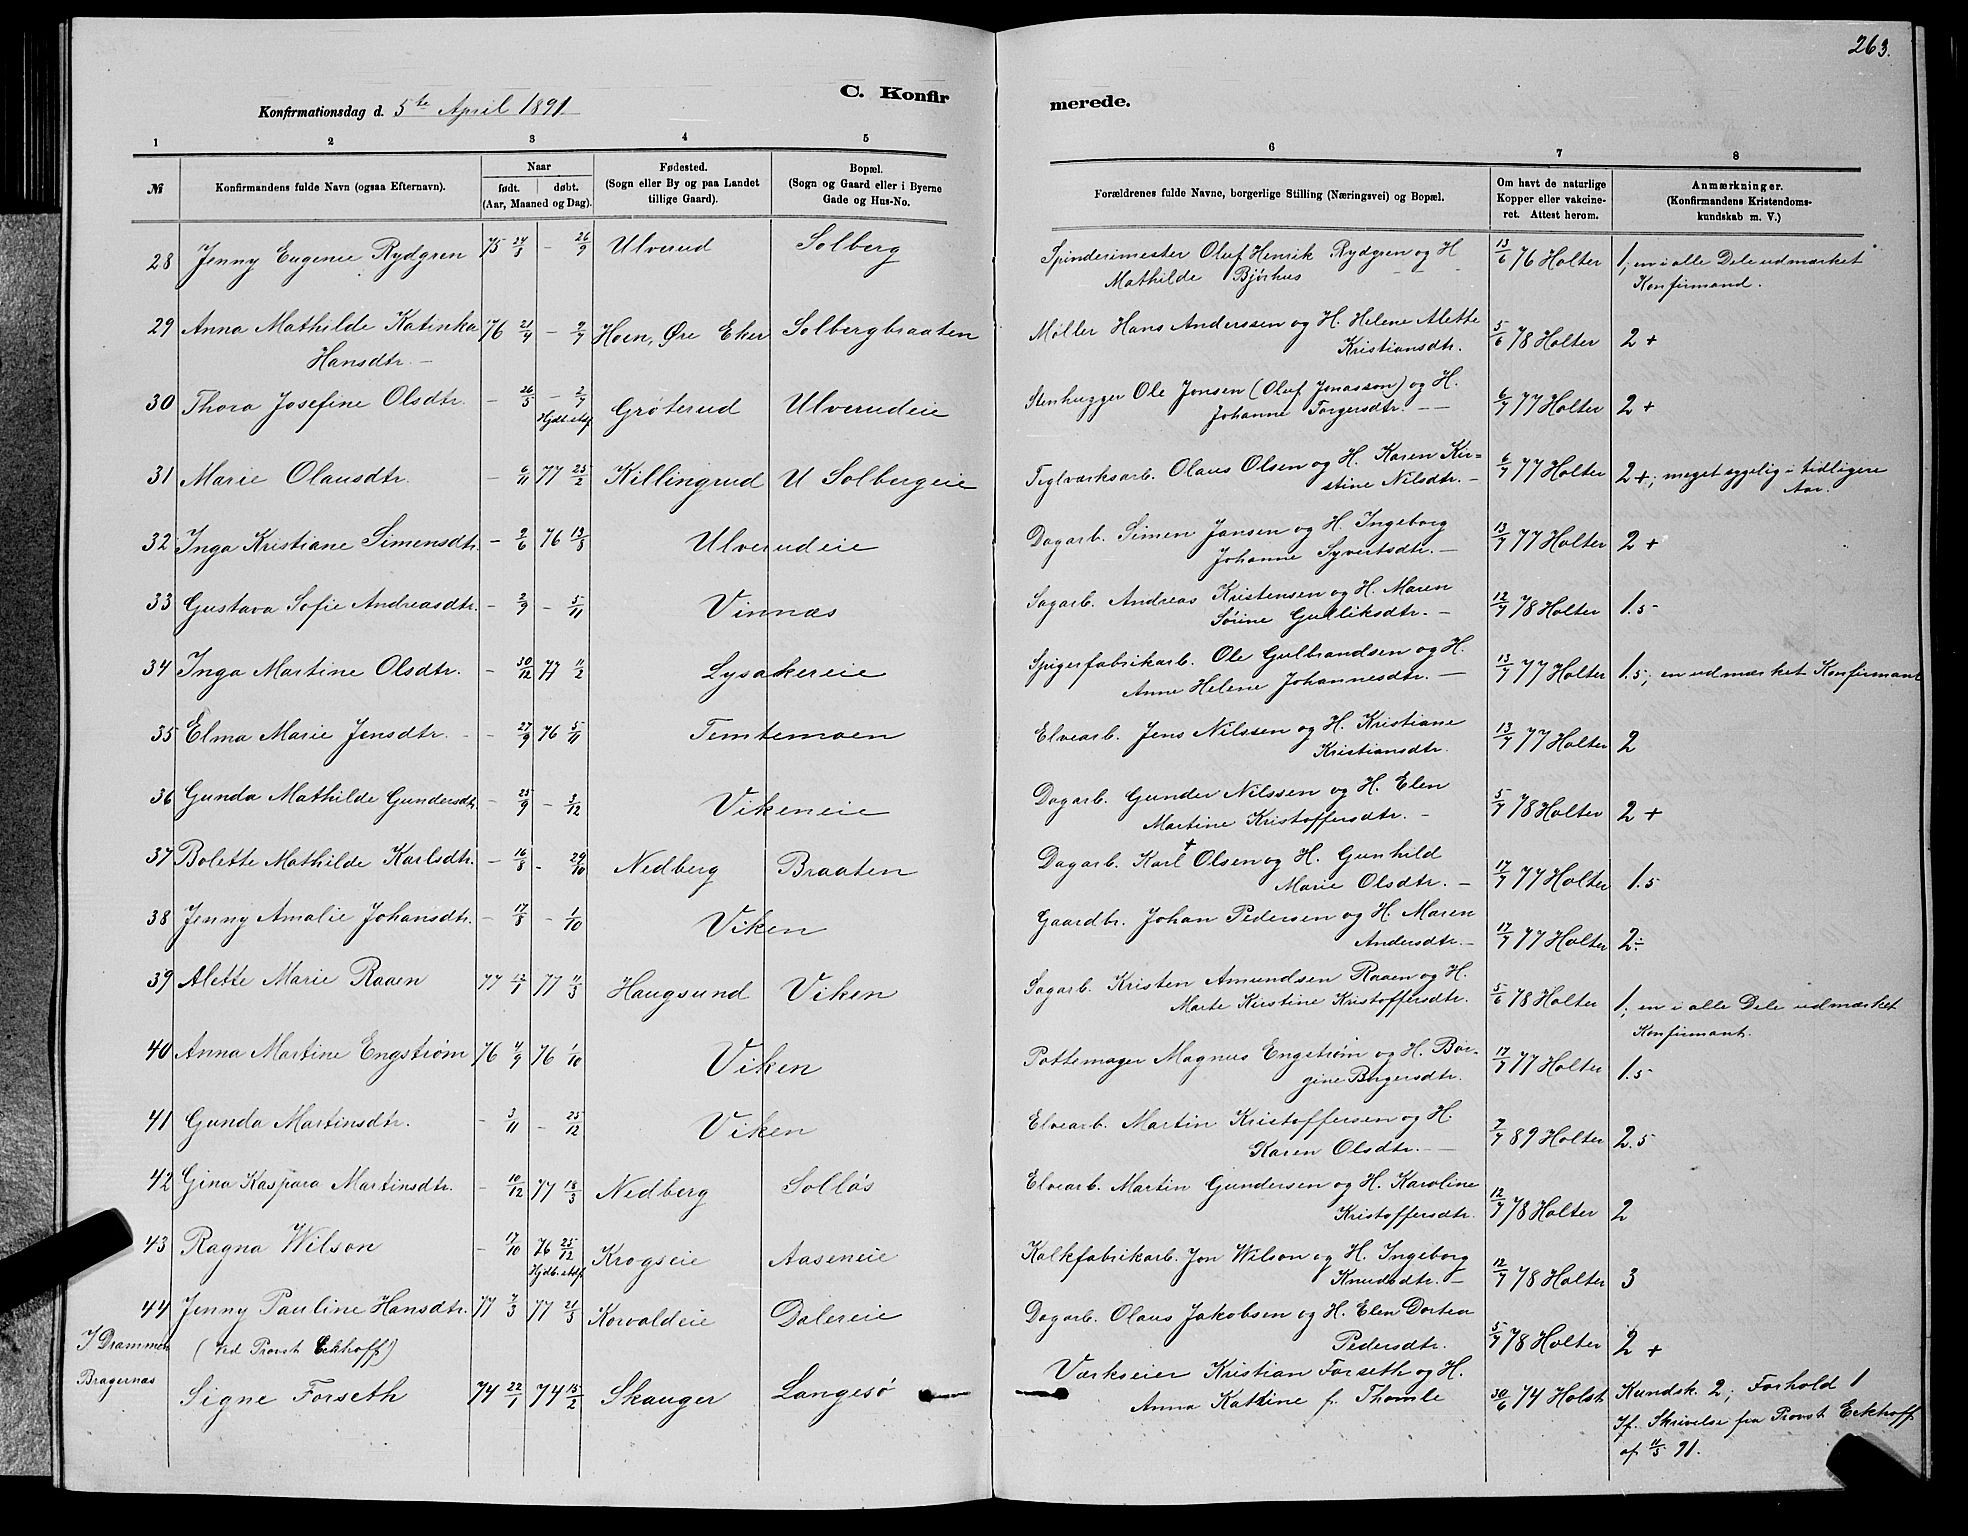 263.
C. Konfirmerede.
Konfirmationsdag d. 5te April 1891.
1 2 3 4 5 6 7 8
№ Konfirmandens fulde Navn (ogsaa Efternavn). Naar født. døbt. (Aar, Maaned og Dag). Fødested. (Sogn eller By og paa Landet tillige Gaard). Bopæl. (Sogn og Gaard eller i Byerne Gade og Hus-No. Forældrenes fulde Navne, borgerlige Stilling (Næringsvei) og Bopæl. Om havt de naturlige Kopper eller vakcineret. Attest herom. Anmærkninger. (Konfirmandens Kristendomskundskab m. V.)
28 Jenny Eugenie Rydgren 75 24/8 – 26/9 Ulverud Solberg Spinderimester Oluf Henrik Rydgren og H 13/6 76 Holter 1; en i alle Dele udmærket
Mathilde Bjørhus Konfirmand.
29 Anna Mathilde Katinka 76 21/4 – 9/7 Hoen, Øre Eker Solbergbraaten Møller Hans Anderssen og H. Helene Alette 5/6 78 Holter 2 +
Hansdtr. – Kristiansdtr.
30 Thora Josefine Olsdtr. – 26/5 – 2/7 Grøterud Ulverudeie Stenhugger Ole Jonsen (Oluf Jonasson) og H. 6/7 77 Holter 2 +
Hjdb. stdf. Johanne Torgersdtr. – –
31 Marie Olausdtr. – 6/11 77 25/2 Killingrud U Solbergeie Teglværksarb. Olaus Olsen og H. Karen Kir- 6/7 77 Holter 2 +; meget sygelig i tidligere
stine Nilsdtr. – Aar.
32 Inga Kristiane Simensdtr. – 2/6 76 13/8 Ulverudeie Dagarb. Simen Jansen og H. Ingeborg 13/7 77 Holter 2 +
Johanne Syvertsdtr. –
33 Gustava Sofie Andreasdtr. – 2/9 – 5/11 Vinnas Sagarb. Andreas Kristensen og H. Maren 12/7 78 Holter 1.5
Sørine Gulliksdtr. –
34 Inga Martine Olsdtr. – 30/12 77 11/2 Lysakereie Spigerfabrikarb. Ole Gulbrandsen og H. 13/7 77 Holter 1.5; en udmærket Konfirmant
Anne Helene Johannesdtr. –
35 Elma Marie Jensdtr. – 27/9 76 5/11 Temtemoen Elvearb. Jens Nilssen og H. Kristiane 13/7 77 Holter 2
Kristiansdtr.
36 Gunda Mathilde Gundersdtr. – 25/9 – 3/12 Vikeneie Dagarb. Gunder Nilssen og H. Elen 5/7 78 Holter 2 +
Martine Kristoffersdtr. –
37 Bolette Mathilde Karlsdtr. – 16/8 – 29/10 Nedberg Braaten Dagarb. Karl + Olsen og H. Gunhild 17/7 77 Holter 1.5
Marie Olsdtr. –
38 Jenny Amalie Johansdtr. – 17/8 – 1/10 Viken Gaardbr. Johan Pedersen og H. Maren 17/7 77 Holter 2÷
Andersdtr. –
39 Alette Marie Raaen 77 12/1 77 11/3 Haugsund Viken Sagarb. Kristen Amundsen Raaen og H. 5/6 78 Holter 1; en i alle Dele udmærket
Marte Kirstine Kristoffersdtr. Konfirmant.
40 Anna Martine Engstrøm 76 4/9 76 1/10 Viken Pottemager Magnus Engstrøm og H. Bor- 17/7 77 Holter 1.5
gine Birgersdtr.
41 Gunda Martinsdtr. – 3/11 – 25/12 Viken Elvearb. Martin Kristoffersen og H. 7/7 89 Holter 2.5
Karen Olsdtr. –
42 Gina Kaspara Martinsdtr. – 10/12 77 18/3 Nedberg Solløs Elvearb. Martin Gundersen og H. Karoline 12/7 78 Holter 2
Kristoffersdtr.
43 Ragna Wilson – 17/10 76 25/12 Krogseie Aaseneie Kalkfabrikarb. Jon Wilson og H. Ingeborg 12/7 78 Holter 3
Hjdb. stdf. Knudsdtr. –
44 Jenny Pauline Hansdtr. 77 7/3 77 21/5 Korvaldeie Dalereie Dagarb. Olaus Jakobsen og H. Elen Dortea 5/7 78 Holter 2 +
I Drammen (ved Provst Eckhoff) Pedersdtr.
Bragernas Signe Forseth 74 22/1 74 15/2 Skauger Langesø Værkseier Kristian Forseth og H. 30/6 74 Holst Kundsk. 2; Forhold 1
Anna Katrine f. Thomle Jf. Skrivelse fra Provst Eckhoff
af 11/5 91.